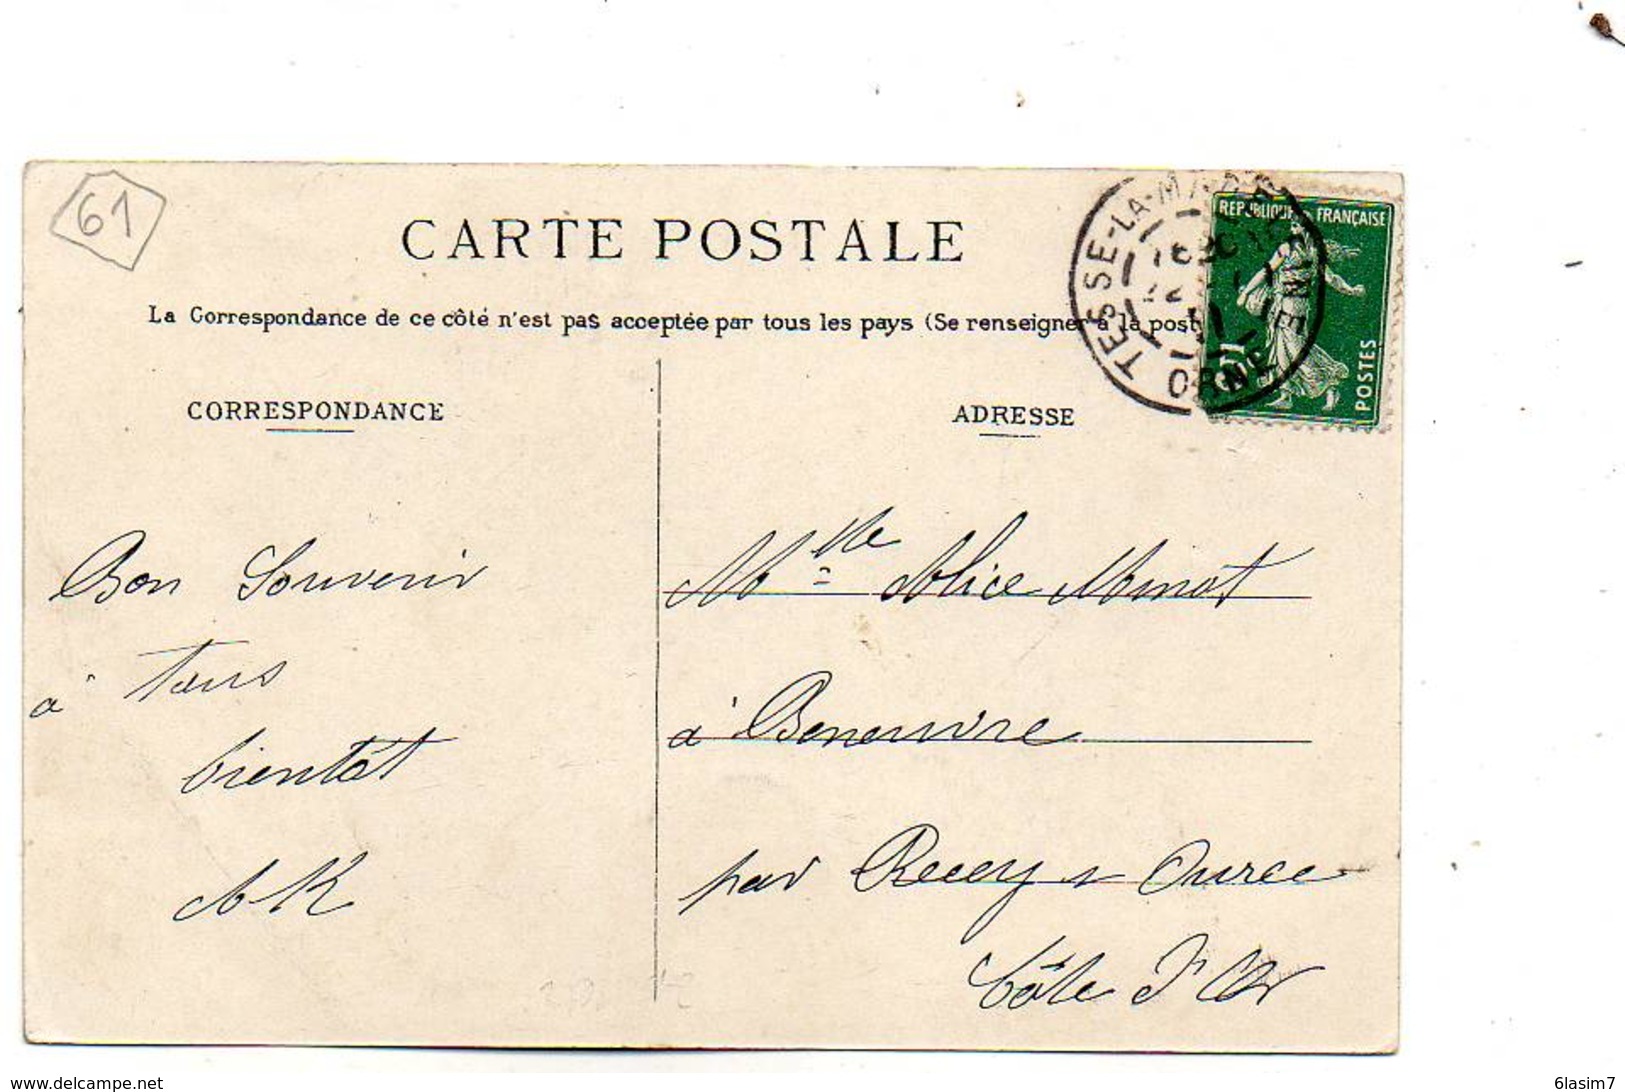 61
CARTE POSTALE
La Correspondance de ce côté n'est pas acceptée par tous les pays (Se renseigner à la post
CORRESPONDANCE
ADRESSE
TESSE-LA-MADELEINE
ORNE
REPUBLIQUE FRANÇAISE
POSTES
Bon Souvenir
à tous
bientôt
AK
Mlle Alice Minot
à Beneuvre
par Recey s Ource
Côte d'Or
www.delcampe.net
6lasim7